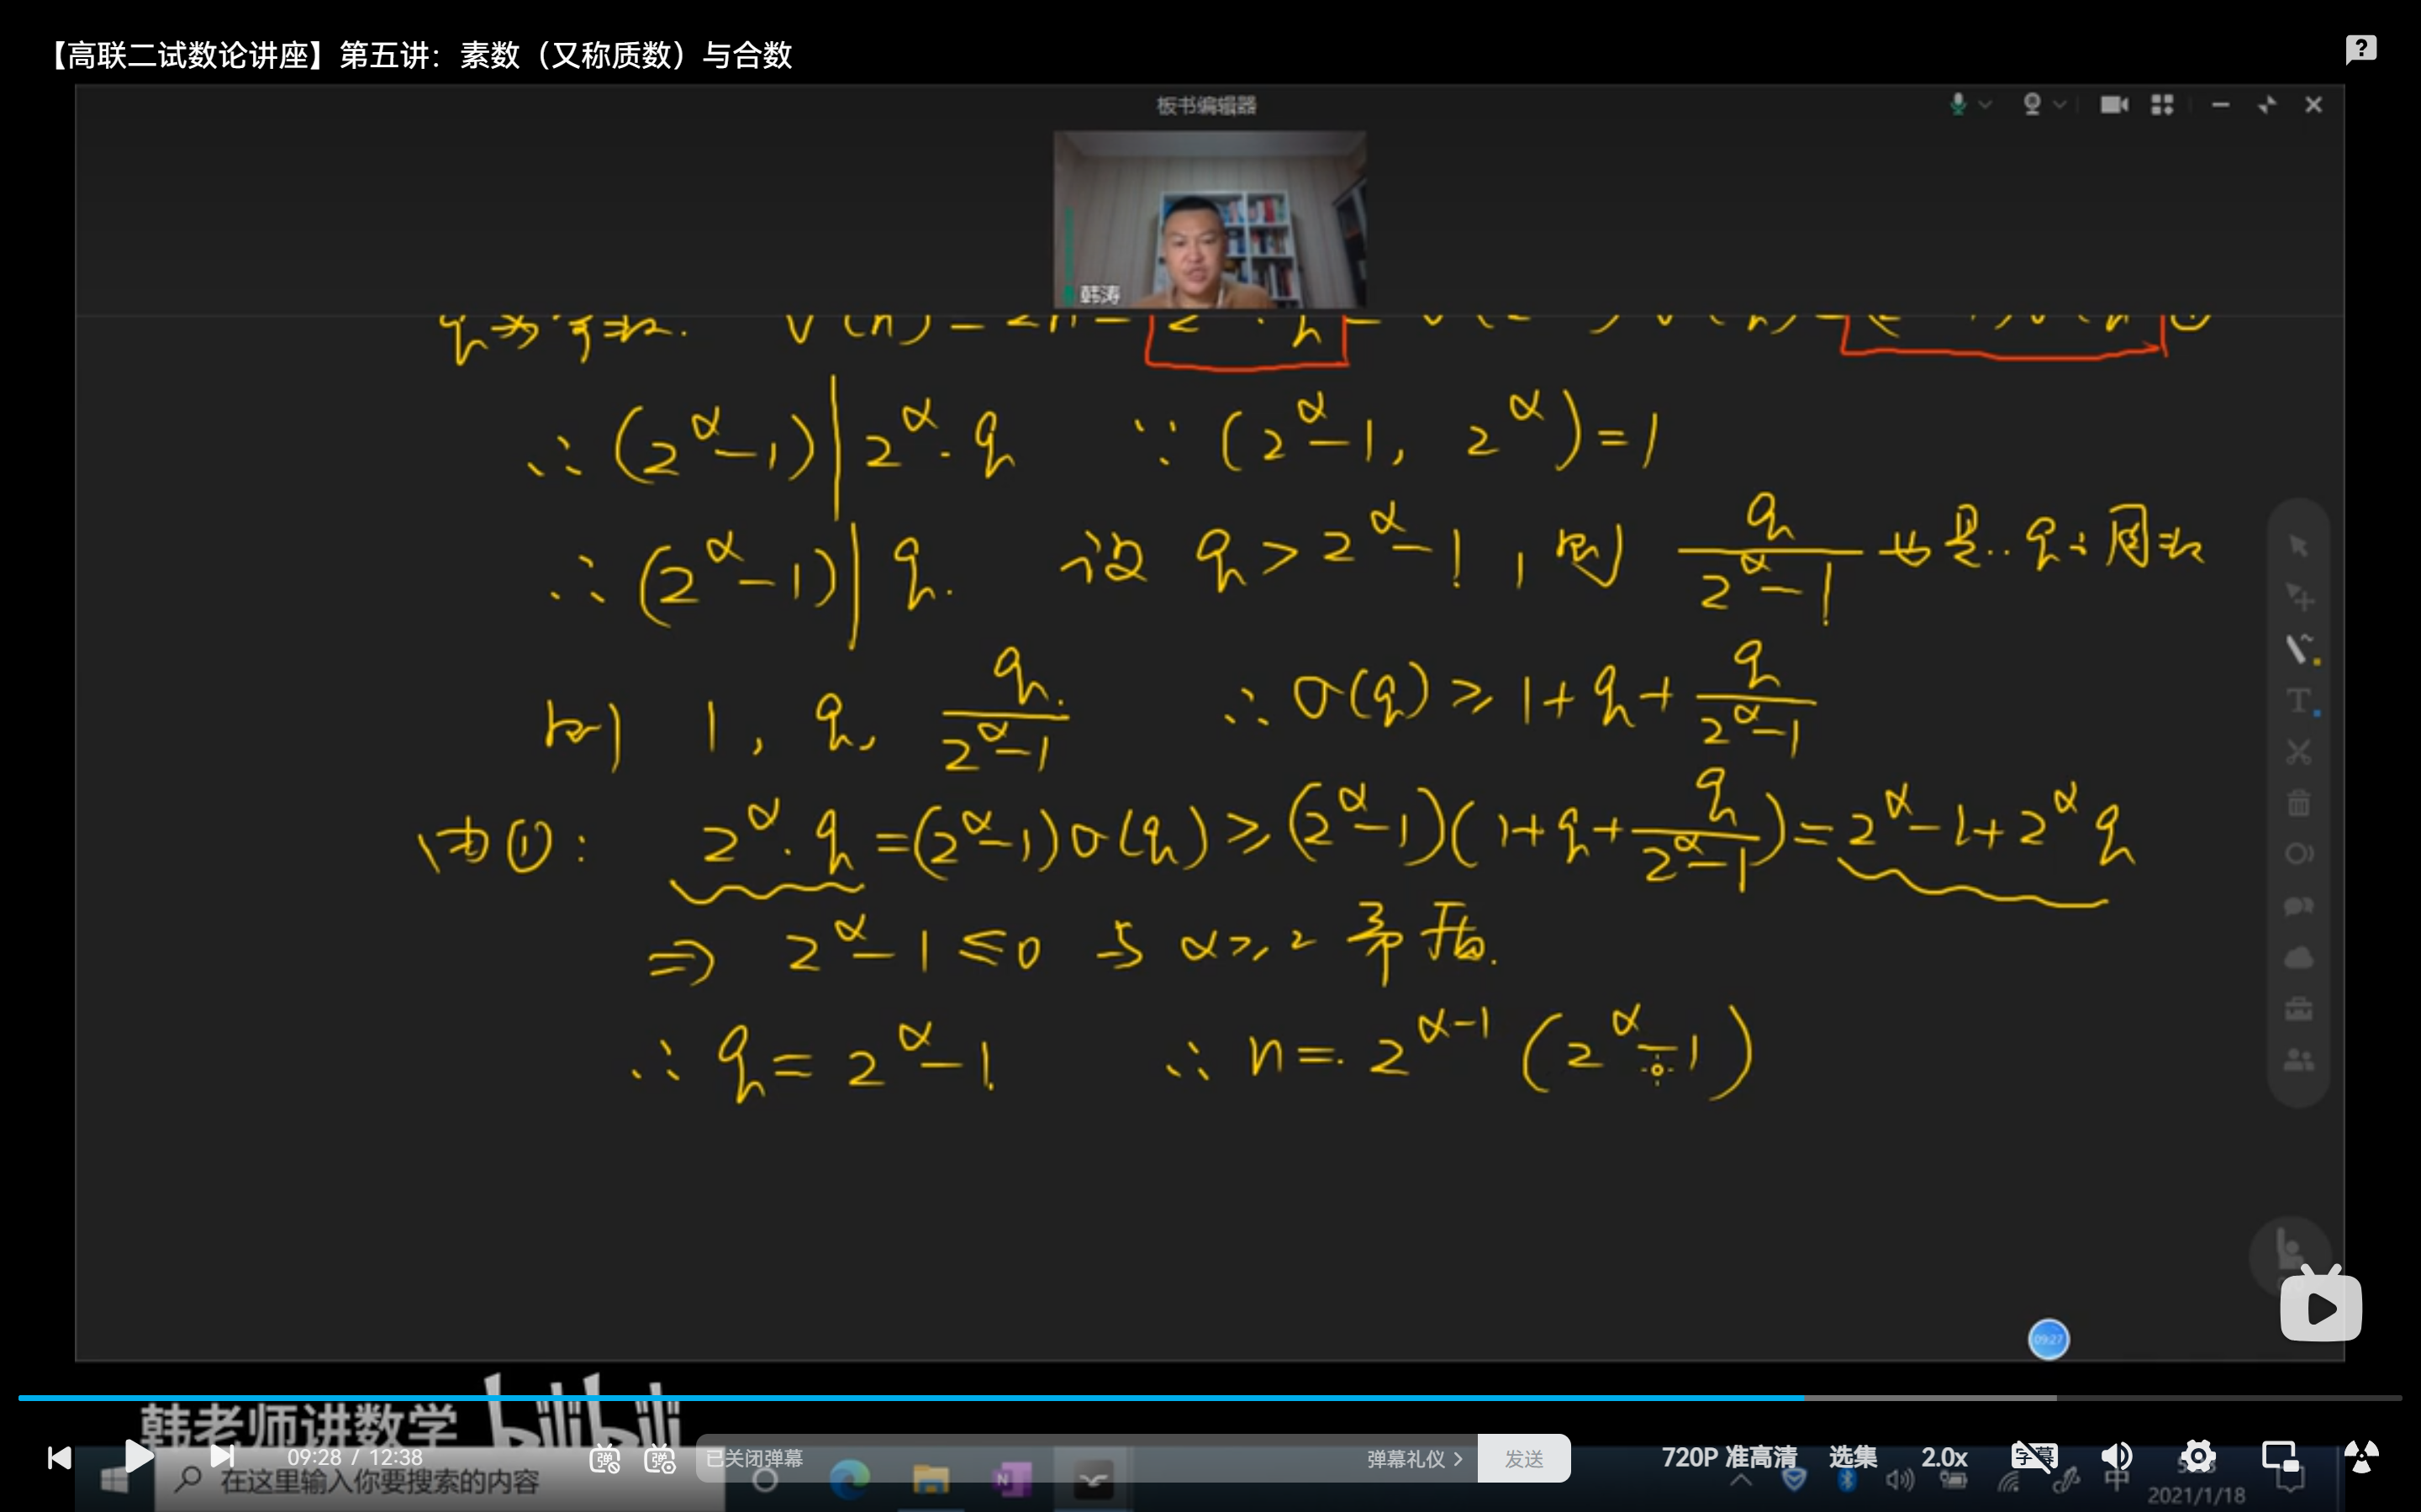 【高联二试数论讲座】第五讲：素数（又称质数）与合数
板书编辑器
韩涛
q为奇数.
∴ (2^α-1) | 2^α·q ∵ (2^α-1, 2^α)=1
∴ (2^α-1) | q. 设 q>2^α-1, 则 q/(2^α-1) 也是 q 的因数
即 1, q, q/(2^α-1) ∴ σ(q) ≥ 1+q+q/(2^α-1)
由①: 2^α·q=(2^α-1)σ(q) ≥ (2^α-1)(1+q+q/(2^α-1))=2^α-1+2^αq
⇒ 2^α-1≤0 与 α≥2 矛盾.
∴ q=2^α-1 ∴ n=2^(α-1)(2^α-1)
09:27
韩老师讲数学 bilibili
09:28 / 12:38 已关闭弹幕 弹幕礼仪 发送 720P 准高清 选集 2.0x 字幕
在这里输入你要搜索的内容 中
2021/1/18